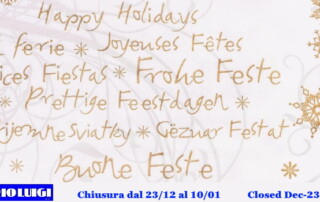 Happy Holidays
ferie * Joyeuses Fêtes
ices Fiestas * Frohe Feste
* Prettige Feestdagen *
rijemne Sviatky * Gëzuar Festat
Buone Feste
RIO LUIGI Chiusura dal 23/12 al 10/01 Closed Dec-23